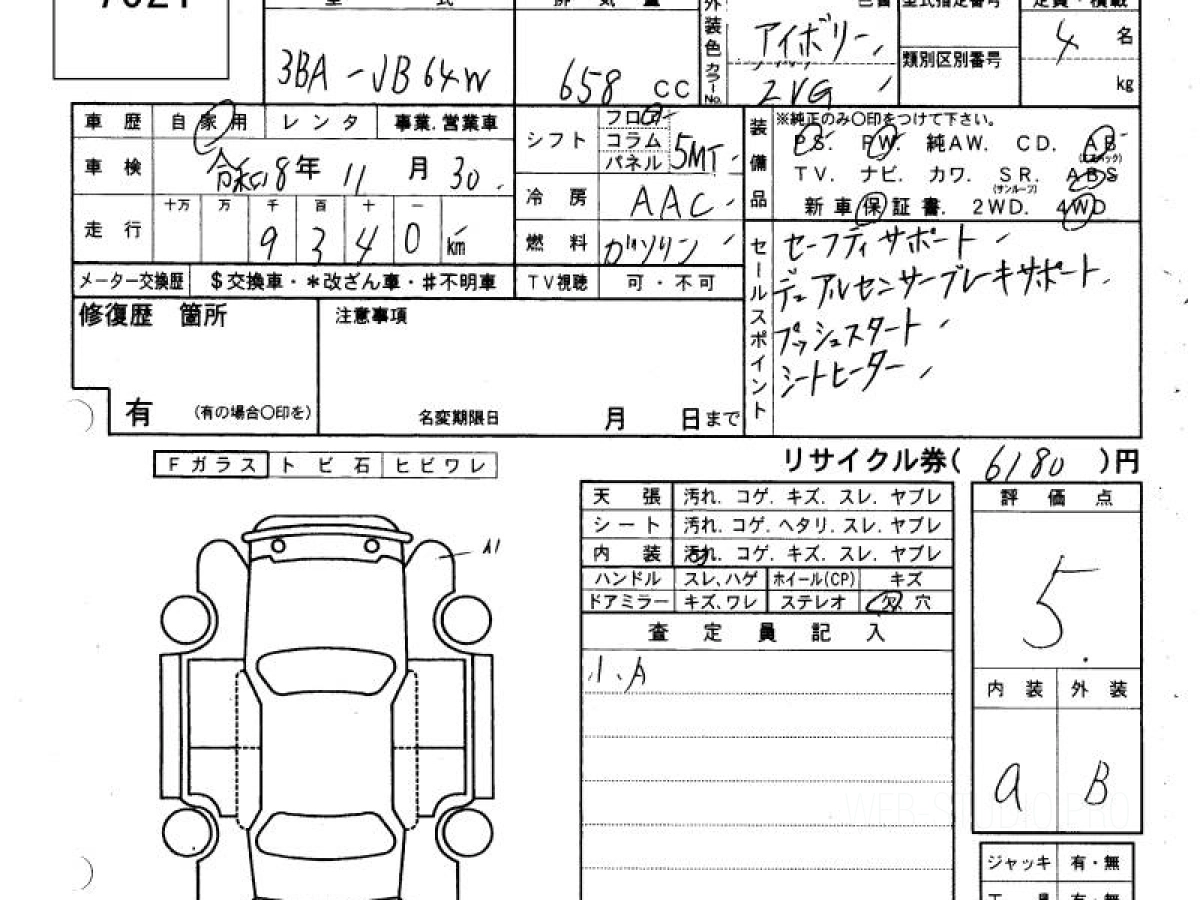 7021
型 式
排 気 量
外装色 カラーNo.
色替
型式指定番号
定員・積載
3BA-JB64W
658 CC
アイボリー
2VG
類別区別番号
4 名
kg
車 歴 自家用 レンタ 事業.営業車
車 検 令和8年 11月 30.
走 行 十万 万 千 百 十 一
9 3 4 0 km
メーター交換歴 $交換車・*改ざん車・#不明車
シフト フロア コラム パネル 5MT
冷 房 AAC
燃 料 ガソリン
TV視聴 可・不可
装備品 ※純正のみ○印をつけて下さい。
PS. PW. 純AW. CD. AB
(エアバック)
TV. ナビ. カワ. SR. ABS
(サンルーフ)
新車保証書. 2WD. 4WD
セールスポイント
セーフティサポート
デュアルセンサーブレーキサポート
プッシュスタート
シートヒーター
修復歴 箇所
有 (有の場合○印を)
注意事項
名変期限日 月 日まで
リサイクル券( 6180 )円
Fガラス トビ石 ヒビワレ
A1
天 張 汚れ. コゲ. キズ. スレ. ヤブレ
シート 汚れ. コゲ. ヘタリ. スレ. ヤブレ
内 装 汚れ. コゲ. キズ. スレ. ヤブレ
ハンドル スレ、ハゲ ホイール(CP) キズ
ドアミラー キズ、ワレ ステレオ 欠. 穴
査 定 員 記 入
小、A
評 価 点
5.
内 装 外 装
a B
ジャッキ 有・無
工 具 有・無
WEB-STUDIO.PRO